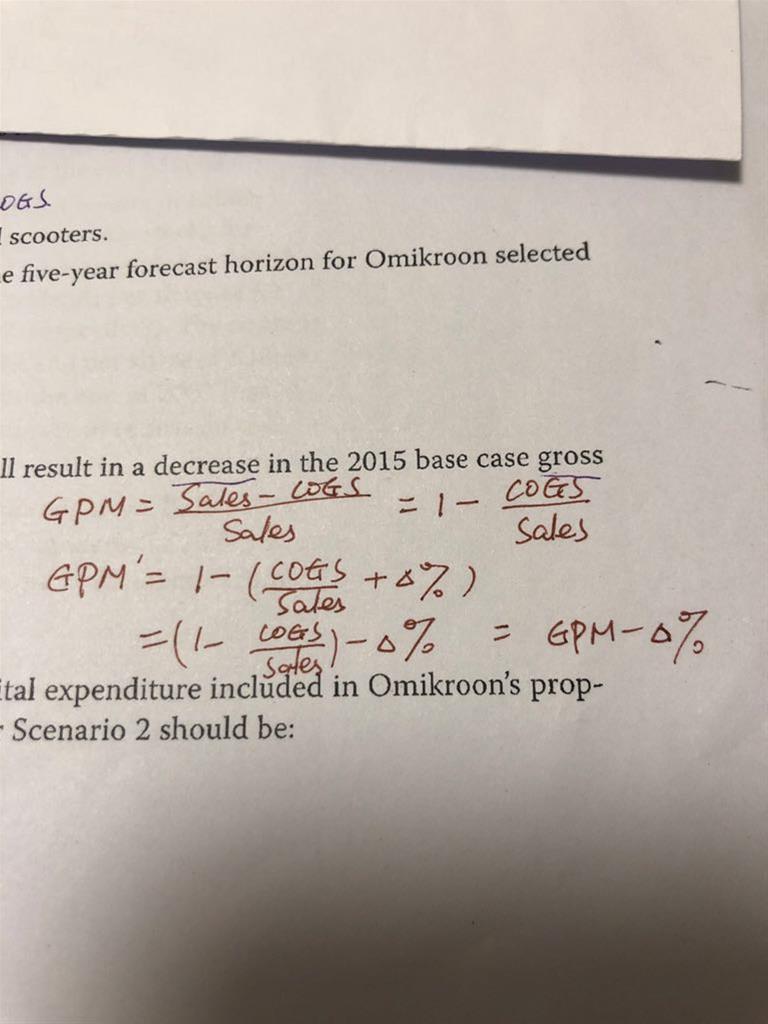 OGS
scooters.
e five-year forecast horizon for Omikroon selected
ll result in a decrease in the 2015 base case gross
GPM = Sales - COGS / Sales = 1 - COGS / Sales
GPM' = 1 - ( COGS / Sales + Δ% )
= ( 1 - COGS / Sales ) - Δ% = GPM - Δ%
ital expenditure included in Omikroon's prop-
Scenario 2 should be: